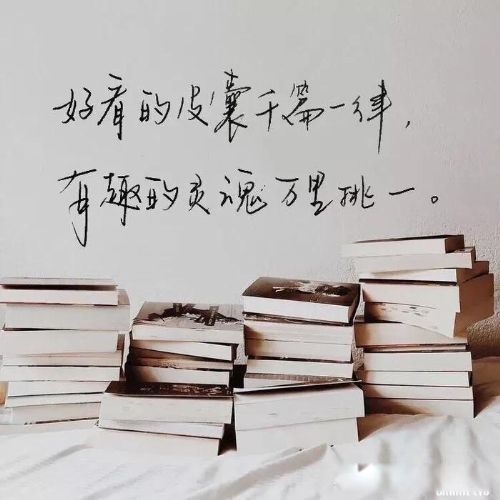 好看的皮囊千篇一律，
有趣的灵魂万里挑一。